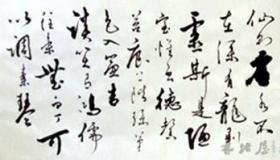 仙則名水不
在深有龍則
靈斯是陋
室惟吾德馨
苔痕上階綠草
色入簾青
談笑有鴻儒
往來無白丁可
以調素琴